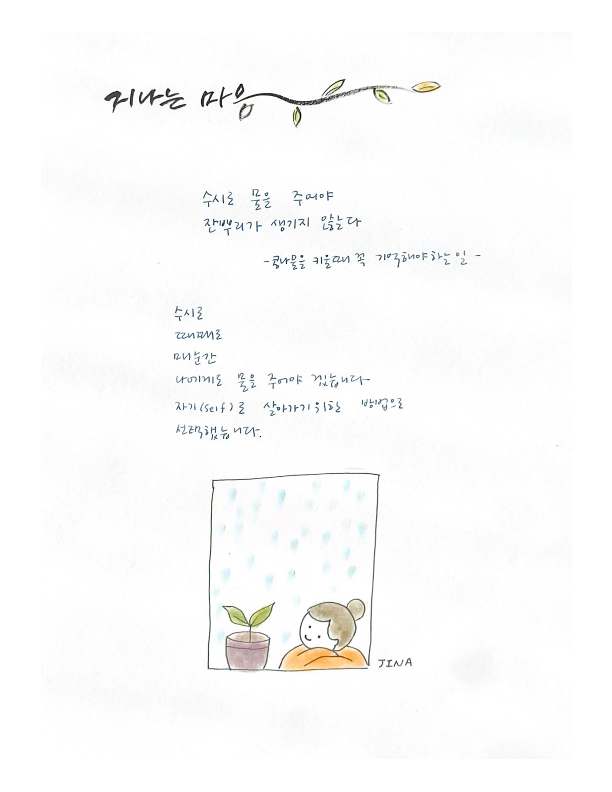 지나는 마음
수시로 물을 주어야
잔뿌리가 생기지 않는다
-콩나물을 키울때 꼭 기억해야하는일-
수시로
때때로
매순간
나에게도 물을 주어야 겠습니다
자기(self)로 살아가기위한 방법으로
선택했습니다.
JINA